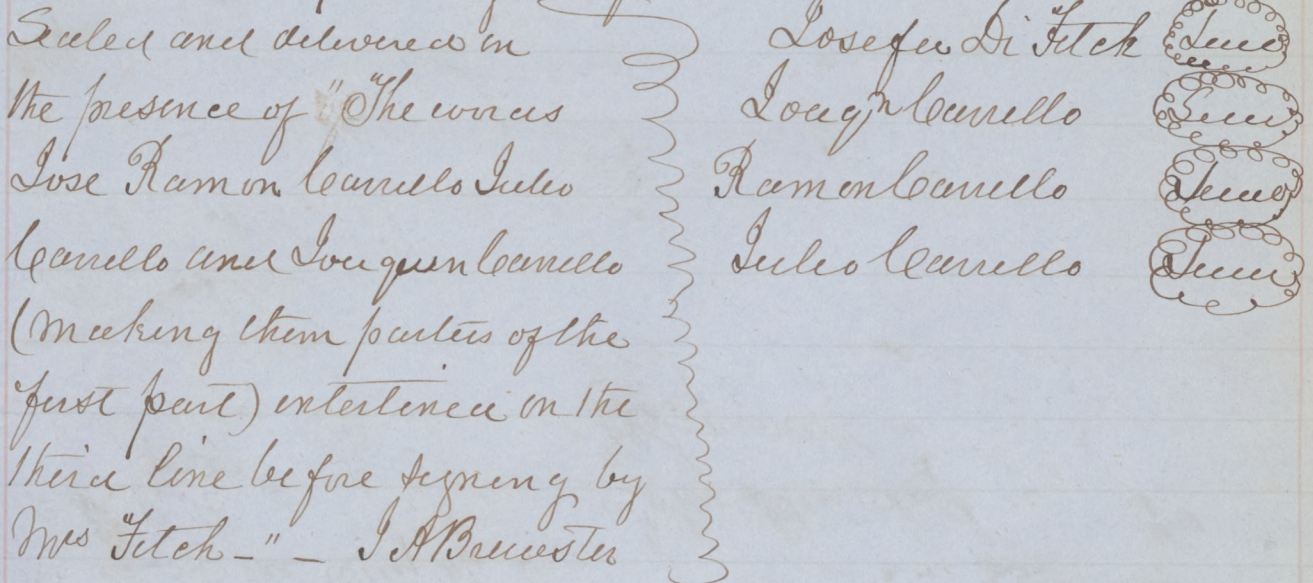 Sealed and delivered in
the presence of "The words
Jose Ramon Carrillo Julio
Carrillo and Joaquin Carrillo
(making them parties of the
first part) interlined on the
third line before signing by
Mrs Fitch—" — J A Brewster
Josefa Di Fitch Seal
Joaqn Carrillo Seal
Ramon Carrillo Seal
Julio Carrillo Seal